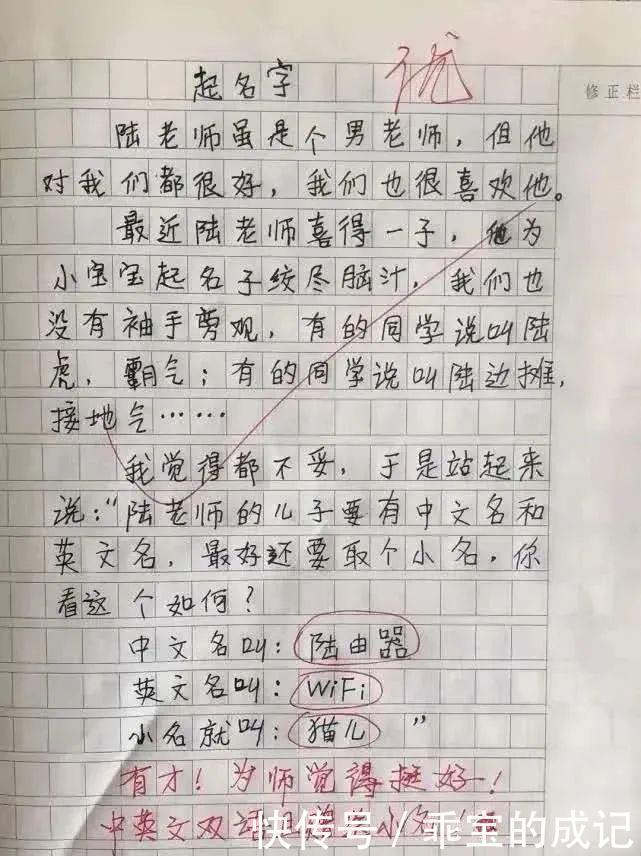 起名字
优
修正栏
陆老师虽是个男老师,但他
对我们都很好,我们也很喜欢他。
最近陆老师喜得一子,他为
小宝宝起名子绞尽脑汁,我们也
没有袖手剪观,有的同学说叫陆
虎,霸气;有的同学说叫陆边摊,
接地气……
我觉得都不妥,于是站起来
说:“陆老师的儿子要有中文名和
英文名,最好还要取个小名,你
看这个如何?
中文名叫:陆由器
英文名叫:WiFi
小名就叫:猫儿”
有才!为师觉得挺好!
中英文双语
小名
快传号/乖宝的成记